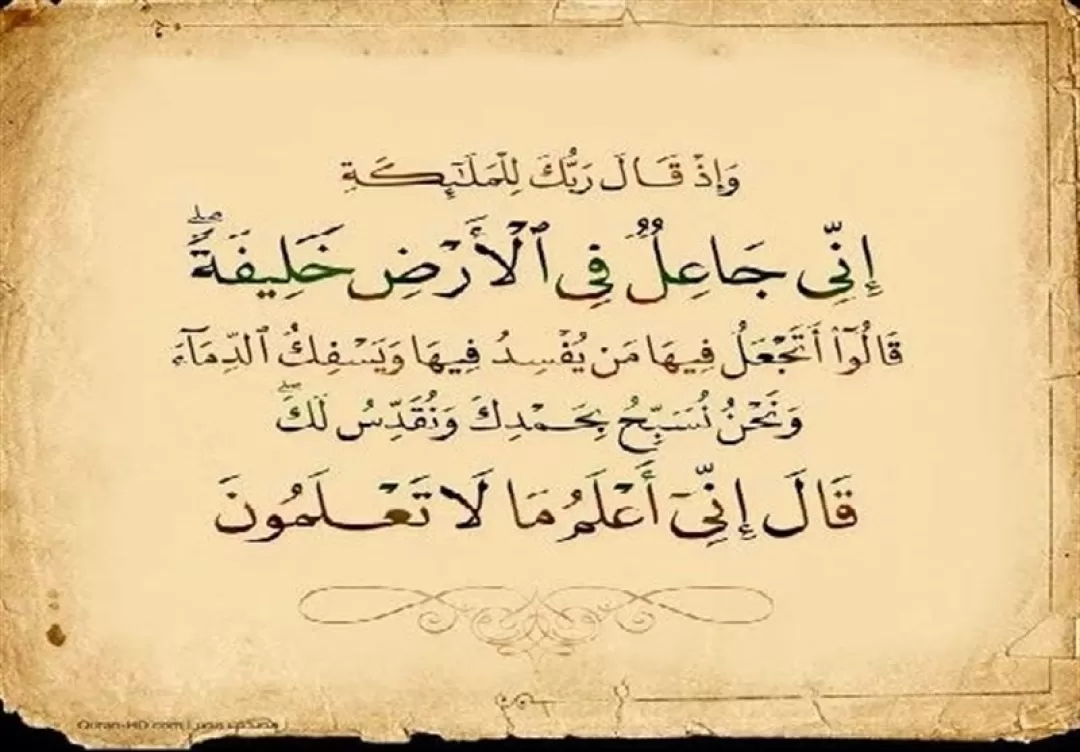 وَإِذْ قَالَ رَبُّكَ لِلْمَلَٰٓئِكَةِ
إِنِّي جَاعِلٌ فِي ٱلْأَرْضِ خَلِيفَةًۖ
قَالُوٓا۟ أَتَجْعَلُ فِيهَا مَن يُفْسِدُ فِيهَا وَيَسْفِكُ ٱلدِّمَآءَ
وَنَحْنُ نُسَبِّحُ بِحَمْدِكَ وَنُقَدِّسُ لَكَۖ
قَالَ إِنِّيٓ أَعْلَمُ مَا لَا تَعْلَمُونَ
Quran-HD.com |